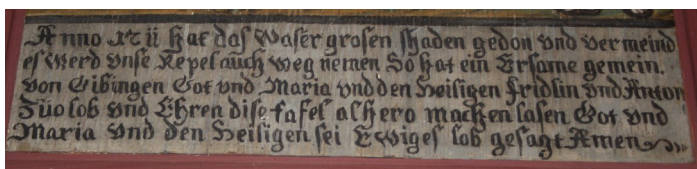 Anno 1711 hat das Waser grosen shaden gedon vnd vermeind
es werd vnse Kepel auch weg nemen So hat ein Ersame gemein.
von Eibingen Got vnd Maria vnd den Heiligen Fridlin vnd Anton
Züo lob vnd Ehren dise tafel alhero machen lasen Got vnd
Maria vnd den Heiligen sei Ewiges lob gesagt Amen